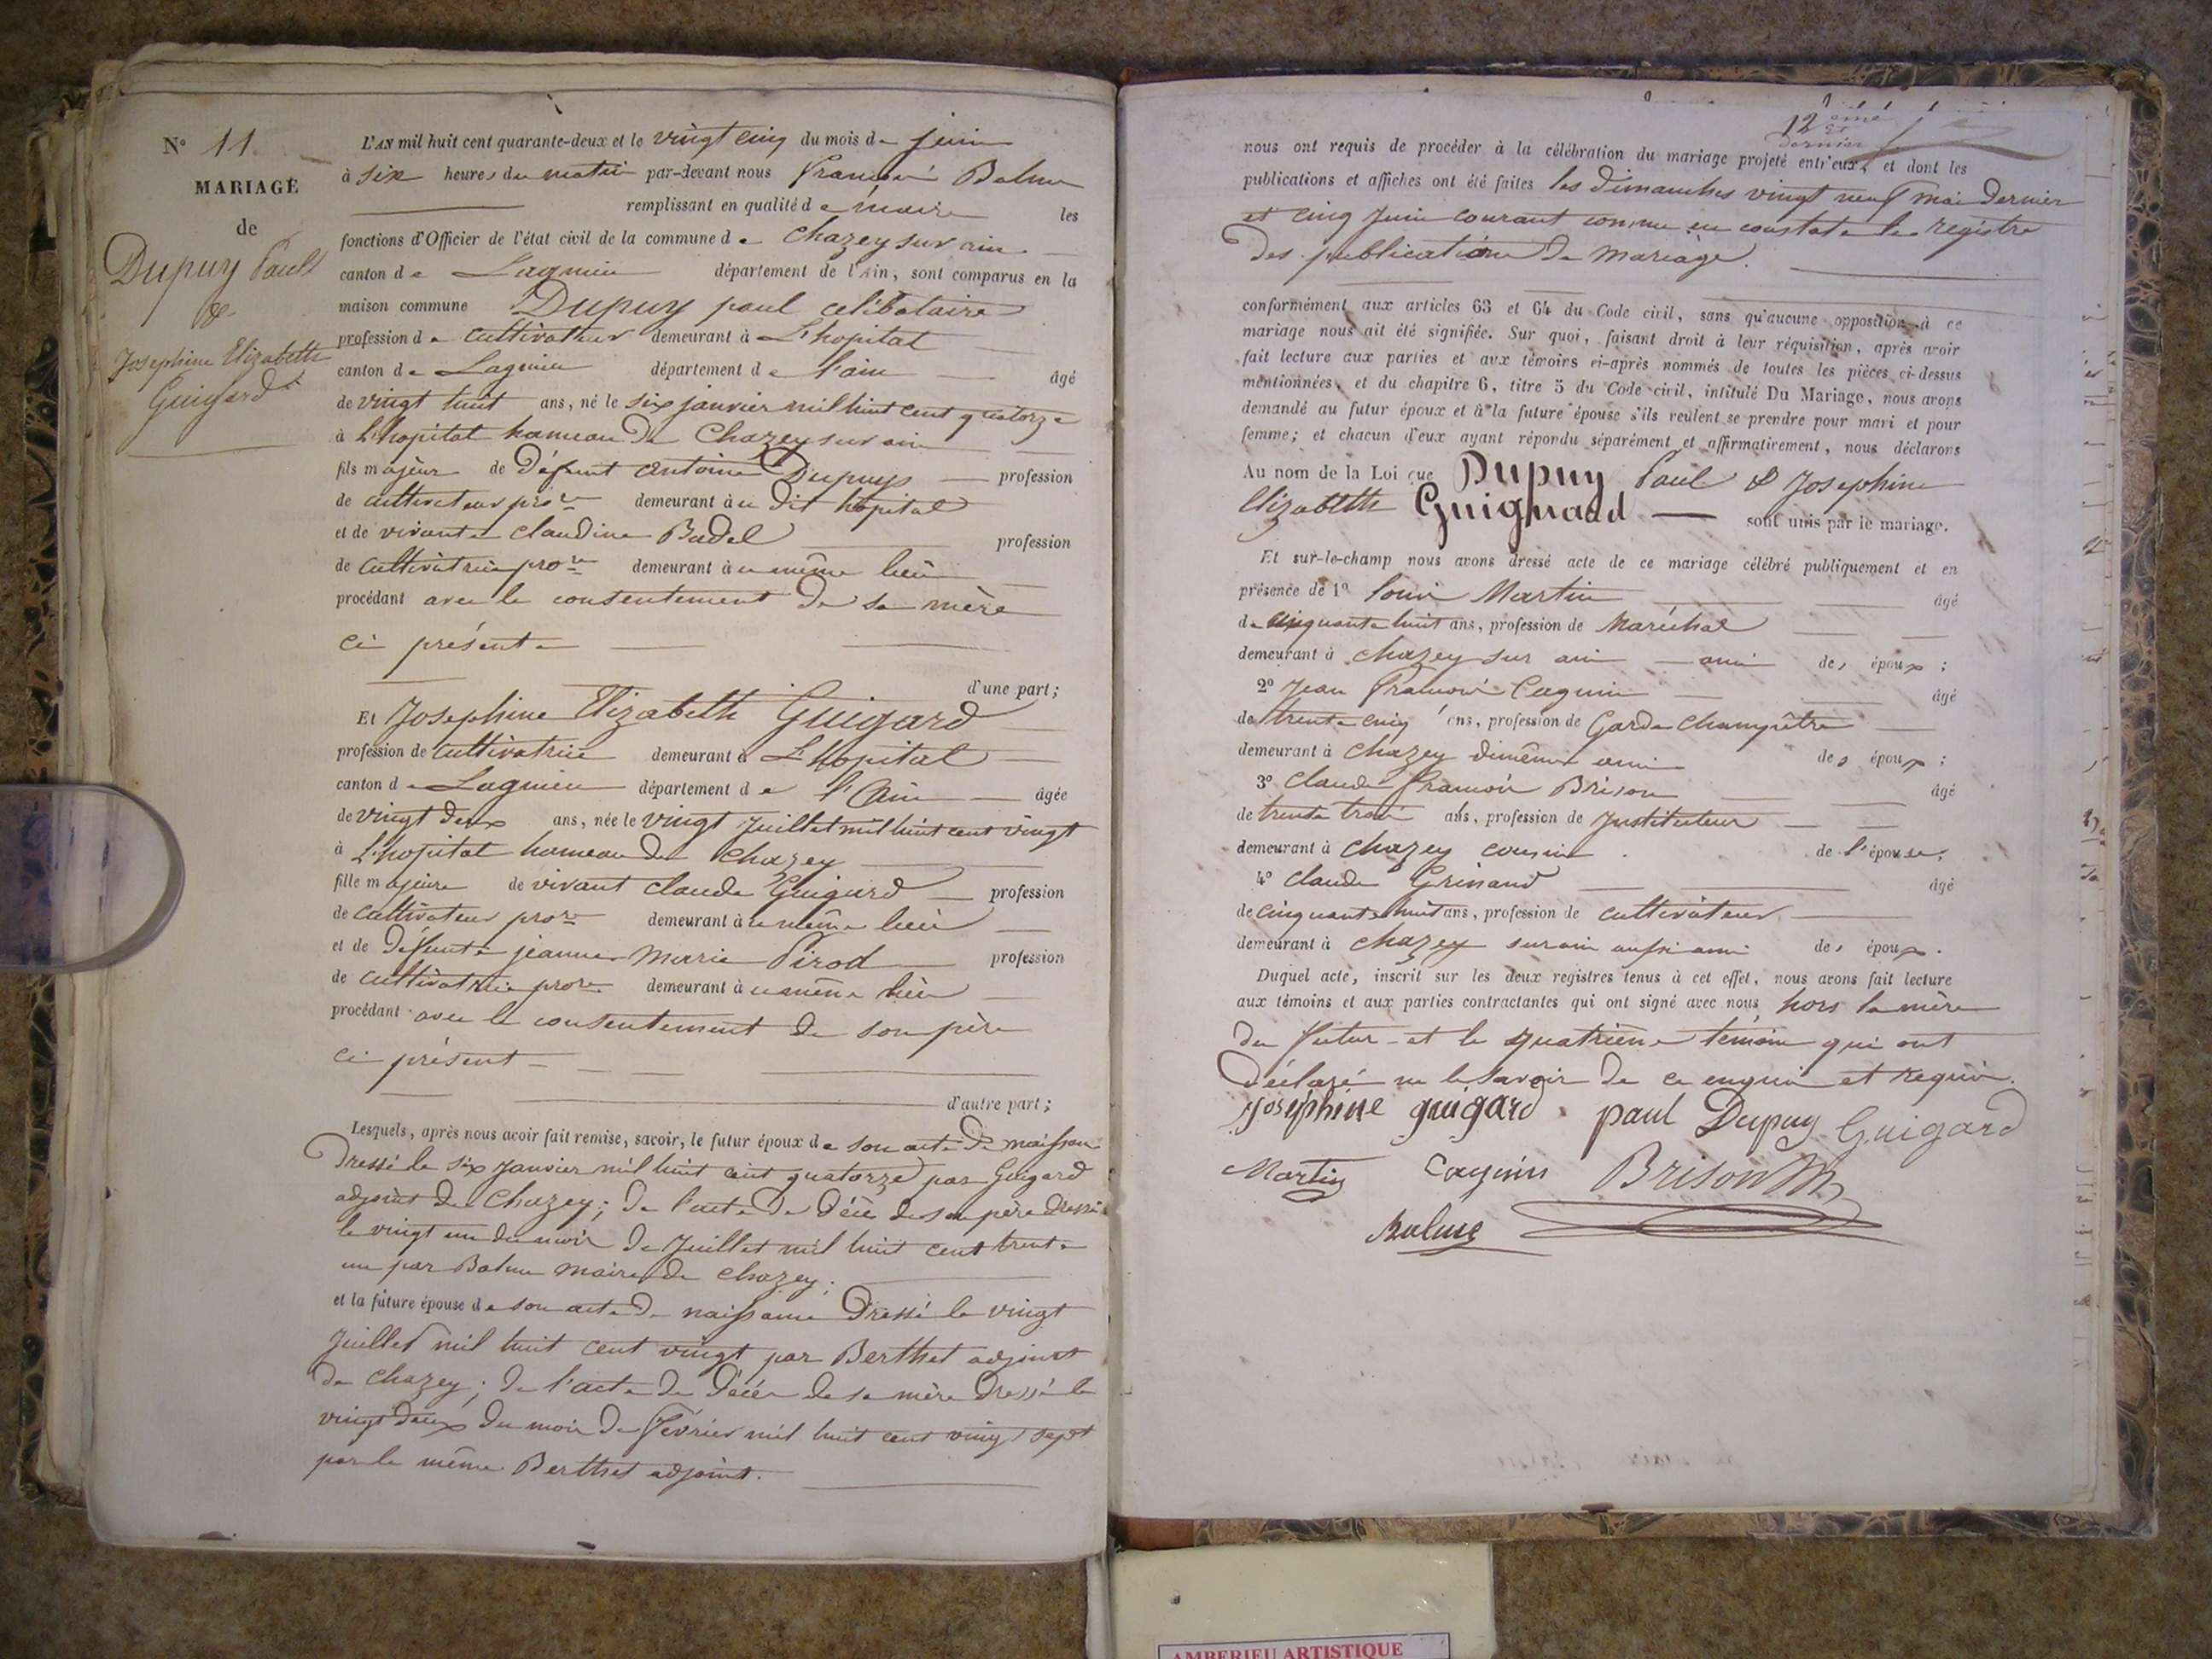 N° 11.
MARIAGE
de
Dupuy Paul
&
Josephine Elizabeth
Guigard
L'AN mil huit cent quarante-deux et le vingt cinq du mois de juin
à six heures du matin par-devant nous François Balme
remplissant en qualité de maire les
fonctions d'Officier de l'état civil de la commune de Chazey sur ain
canton de Lagnieu département de l'Ain, sont comparus en la
maison commune Dupuy paul celibataire
profession de cultivateur demeurant à L'hopital
canton de Lagnieu département de l'ain âgé
de vingt huit ans, né le six janvier mil huit cent quatorze
à L'hopital hameau de Chazey sur ain
fils majeur de défunt antoine Dupuy profession
de cultivateur prore demeurant à u dit hopital
et de vivante Claudine Badel profession
de cultivatrice prore demeurant à u même lieu
procédant avec le consentement de sa mère
ci présente
d'une part;
Et Josephine Elizabeth Guigard
profession de cultivatrice demeurant à L'hopital
canton de Lagnieu département de l'Ain âgée
de vingt deux ans, née le vingt Juillet mil huit cent vingt
à L'hopital hameau de Chazey
fille majeure de vivant Claude Guigard profession
de cultivateur prore demeurant à u même lieu
et de défunte jeanne Marie Pirod profession
de cultivatrice prore demeurant à u même lieu
procédant avec le consentement de son père
ci présent
d'autre part;
Lesquels, après nous avoir fait remise, savoir, le futur époux de son acte de naissance
Dressé le six Janvier mil huit cent quatorze par Guigard
adjoint de Chazey; de l'acte de décès de son père dressé
le vingt un du mois de Juillet mil huit cent trente
un par Balme maire de Chazey.
et la future épouse de son acte de naissance Dressé le vingt
Juillet mil huit cent vingt par Berthet adjoint
de Chazey; de l'acte de décès de sa mère Dressé le
vingt deux du mois de Février mil huit cent vingt sept
par le même Berthet adjoint.
12 eme
et
dernier
nous ont requis de procéder à la célébration du mariage projeté entr'eux, et dont les
publications et affiches ont été faites les dimanches vingt neuf mai dernier
et cinq Juin courant comme en constate le registre
des publications de mariage.
conformément aux articles 63 et 64 du Code civil, sans qu'aucune opposition à ce
mariage nous ait été signifiée. Sur quoi, faisant droit à leur réquisition, après avoir
fait lecture aux parties et aux témoins ci-après nommés de toutes les pièces ci-dessus
mentionnées, et du chapitre 6, titre 5 du Code civil, intitulé Du Mariage, nous avons
demandé au futur époux et à la future épouse s'ils veulent se prendre pour mari et pour
femme; et chacun d'eux ayant répondu séparément et affirmativement, nous déclarons
Au nom de la Loi que Dupuy Paul & Josephine
Elizabeth Guignard sont unis par le mariage.
Et sur-le-champ nous avons dressé acte de ce mariage célébré publiquement et en
présence de 1° Louis Martin âgé
de cinquante huit ans, profession de Maréchal
demeurant à Chazey sur ain ami des époux;
2° Jean François Cagnin âgé
de trente cinq ans, profession de Garde Champêtre
demeurant à Chazey dimême ami des époux;
3° Claude François Brison âgé
de trente trois ans, profession de Instituteur
demeurant à Chazey cousin de l'épouse.
4° Claude Grinand âgé
de cinquante huit ans, profession de cultivateur
demeurant à Chazey sur ain aussi ami des époux.
Duquel acte, inscrit sur les deux registres tenus à cet effet, nous avons fait lecture
aux témoins et aux parties contractantes qui ont signé avec nous hors la mère
du futur et le quatrième témoin qui ont
déclaré ne le savoir de ce enquis et requis.
Joséphine guigard paul Dupuy Guigard
Martin Cagnin Brison
Balme
AMBERIEU ARTISTIQUE